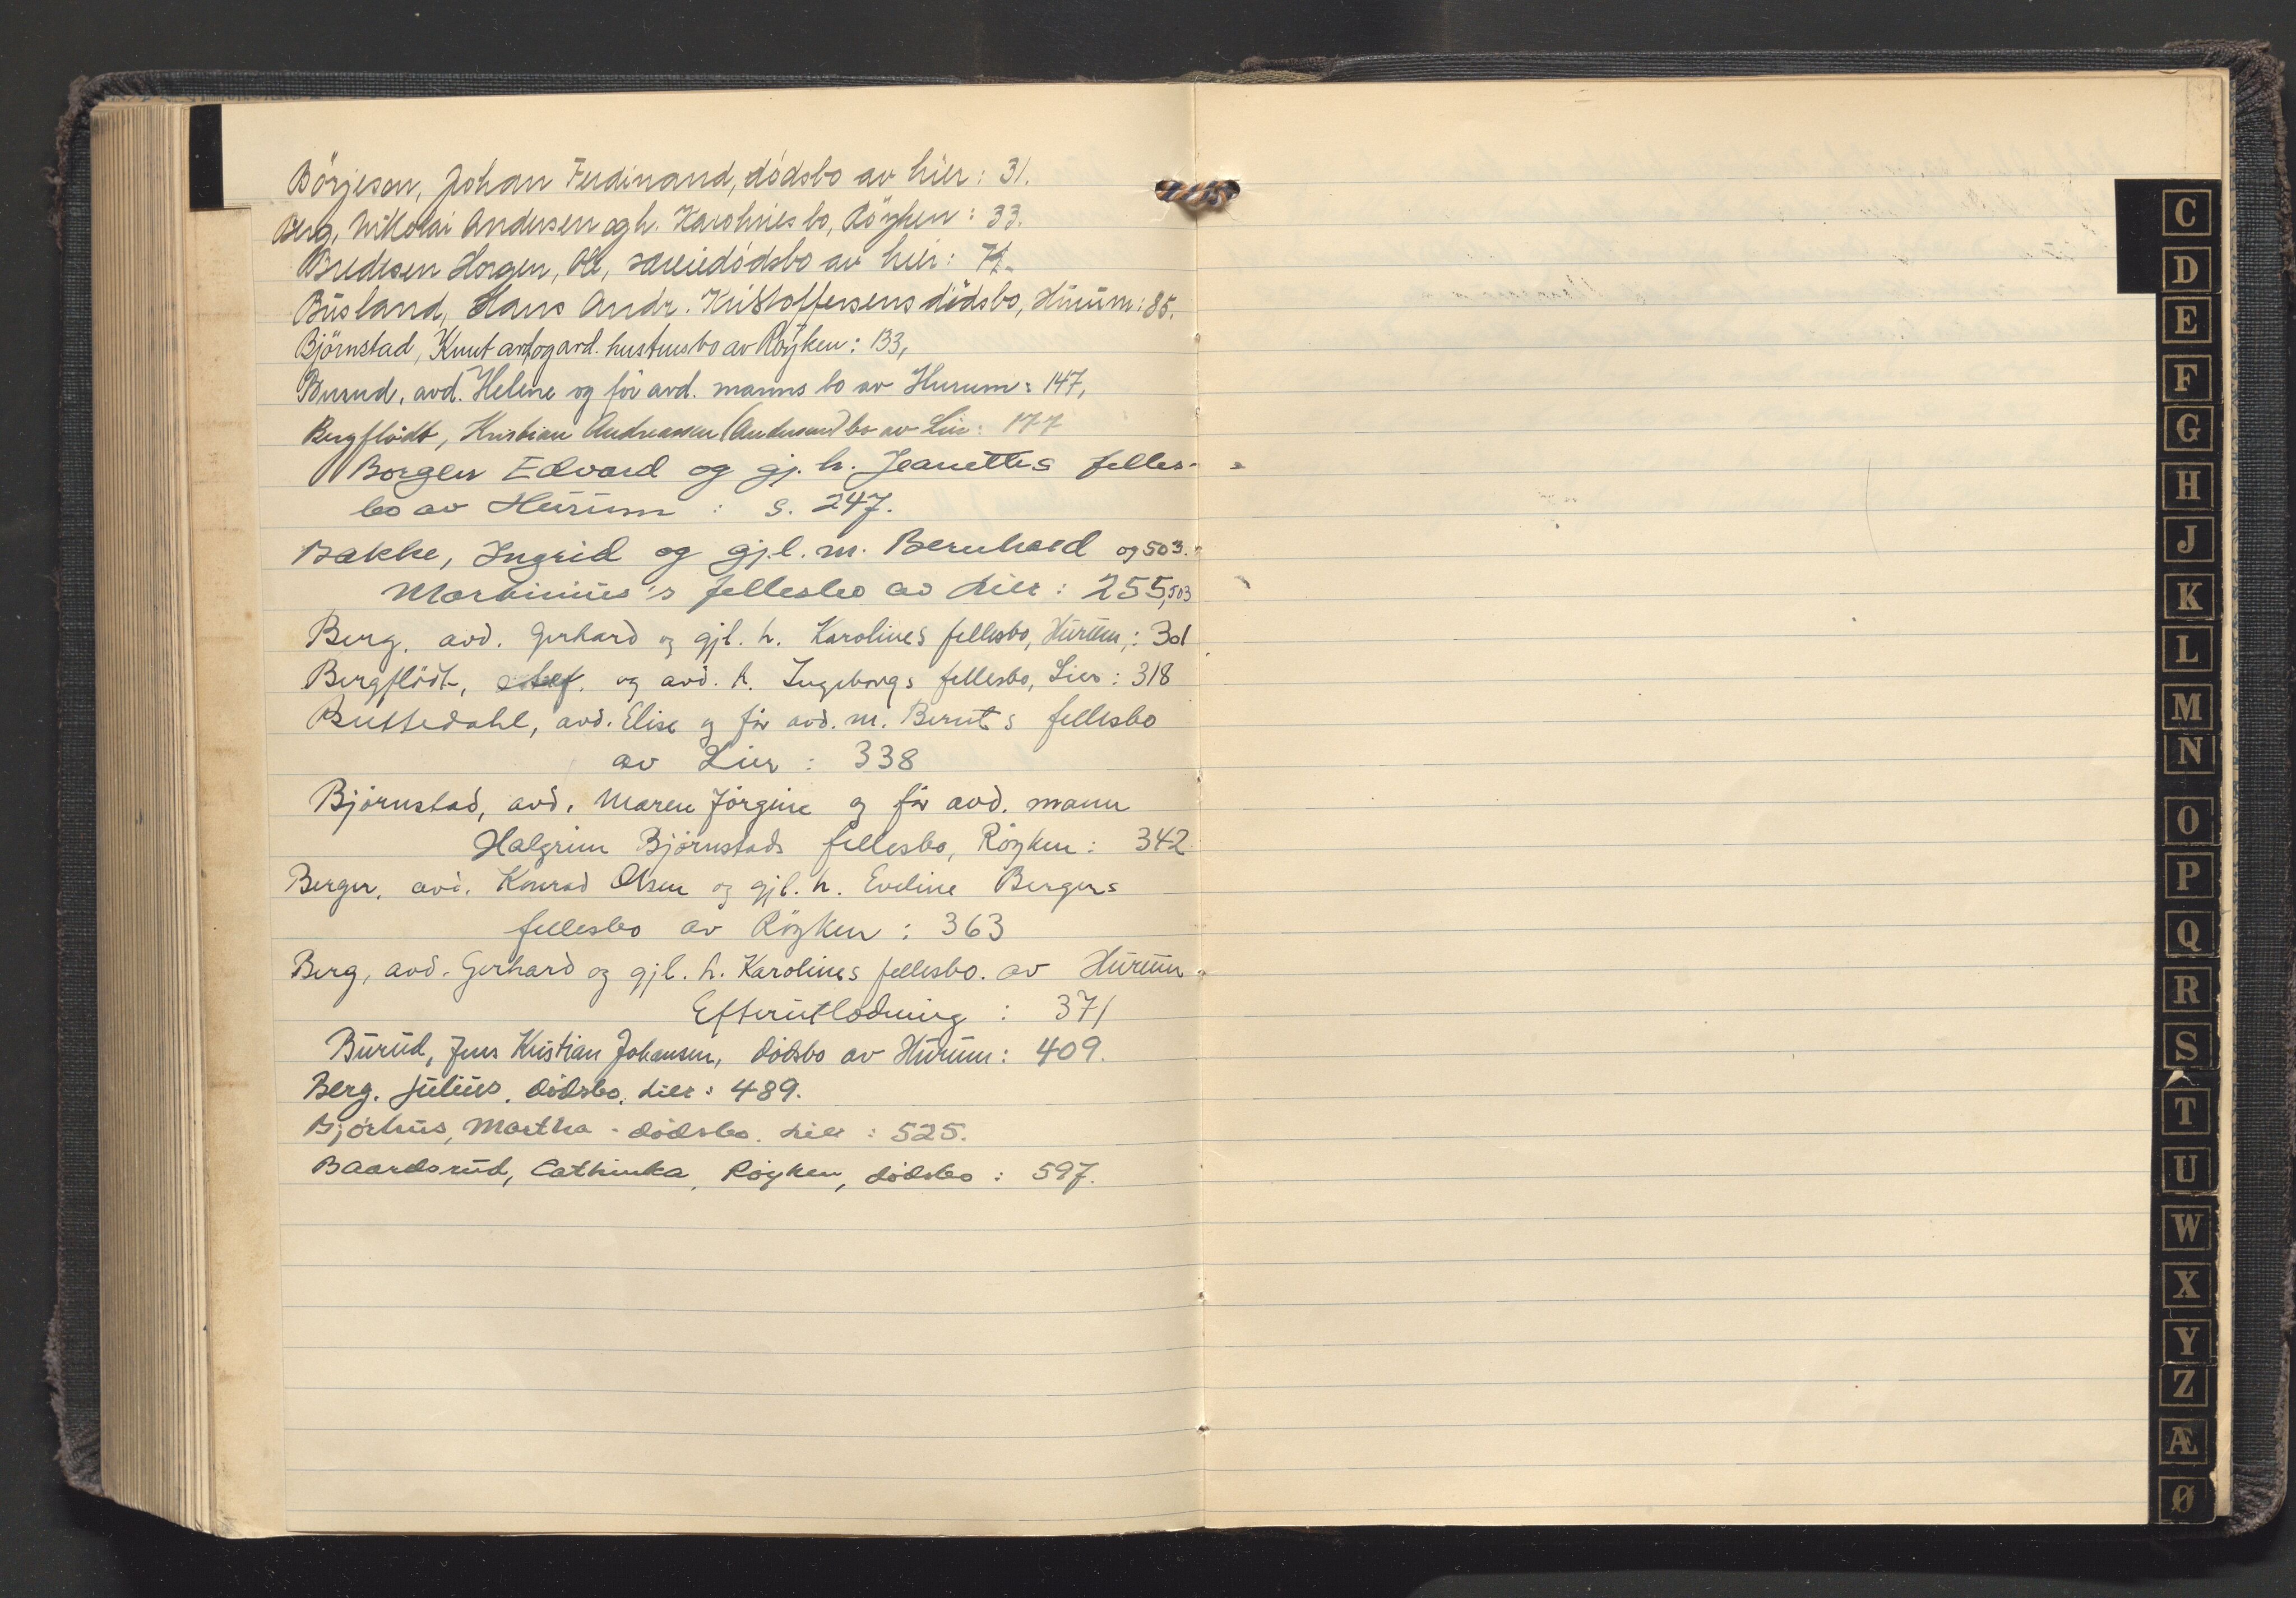 Börjeson, Johan Ferdinand, dödsbo av Lier: 31.
Berg, Nikolai Andersen og h. Karolines bo, Röyken: 33.
Bredesen Horgen, Ole, dödsbo av Lier:
Busland, Hans Andr. Kristoffersens dödsbo, Hurum: 85.
Björnstad, Knut og avd. hustrus bo av Röyken: 133,
Burud, avd. Helene og för avd. manns bo av Hurum: 147,
Bergflödt, Kristian Andreassen (Andersen) bo av Lier: 177
Borgen Edvard og gj. h. Jeanettes felles-
bo av Hurum : s. 247.
Bakke, Ingrid og gjl. m. Bernhard og 503.
Martinius's fellesbo av Lier: 255,503
Berg, avd. Gerhard og gjl. h. Karolines fellesbo, Hurum,: 301
Bergflödt, og avd. h. Ingeborgs fellesbo, Lier: 318
Buttedahl, avd. Elise og för avd. m. Bernts fellesbo
av Lier : 338
Björnstad, avd. Maren Jörgine og för avd. mann
Halgrim Björnstads fellesbo, Röyken: 342
Berger, avd. Konrad Olsen og gjl. h. Eveline Bergers
fellesbo av Röyken : 363
Berg, avd. Gerhard og gjl. h. Karolines fellesbo. av Hurum
Efterutlodning : 371
Burud, Jens Kristian Johansen, dödsbo av Hurum: 409.
Berg. Julius. dödsbo, Lier: 489.
Björhus, Martha - dödsbo. Lier : 525.
Baardsrud, Cathinka, Röyken, dödsbo : 597.
C
D
E
F
G
H
J
K
L
M
N
O
P
Q
R
S
T
U
W
X
Y
Z
Æ
Ø